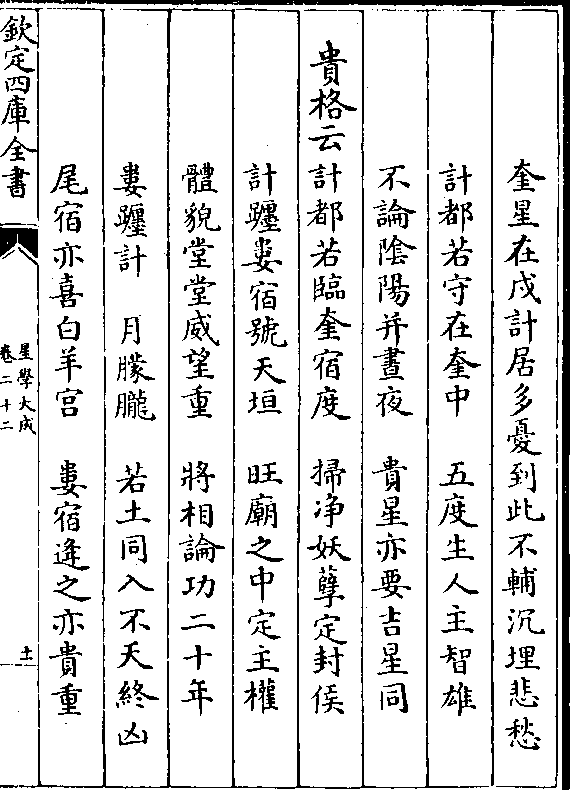 奎星在戌計居多憂到此不輔沉埋悲愁
計都若守在奎中　五度生人主智雄
不論陰陽并晝夜　貴星亦要吉星同
貴格云計都若臨奎宿度　掃净妖孽定封侯
計躔婁宿號天垣　旺廟之中定主權
體貌堂堂威望重　將相論功二十年
婁躔計　月朦朧　若土同入不夭終凶
尾宿亦喜白羊宫　婁宿逢之亦貴重
欽定四庫全書
星學大成
卷二十二
十一